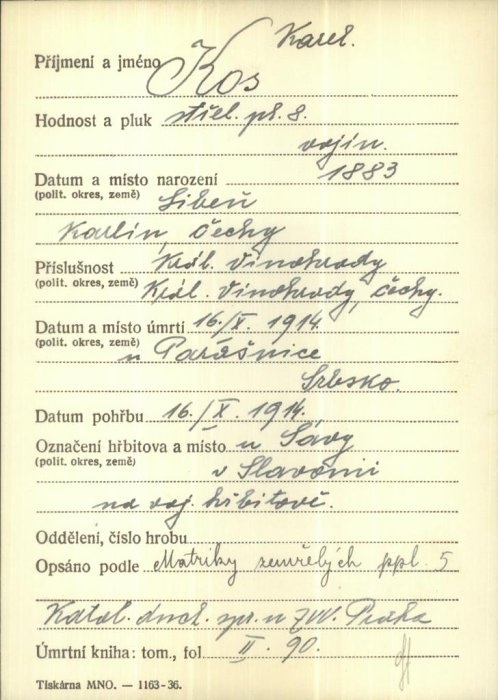 Karel.
Příjmení a jméno Kos
Hodnost a pluk střel. pl. 8.
vojín.
Datum a místo narození 1883
(polit. okres, země) Libeň
Karlín, Čechy
Příslušnost Král. Vinohrady
(polit. okres, země) Král. Vinohrady, Čechy.
Datum a místo úmrtí 16./X. 1914.
(polit. okres, země) u Parášnice
Srbsko.
Datum pohřbu 16./X. 1914.
Označení hřbitova a místo u Sávy
(polit. okres, země) v Slavonii
na voj. hřbitově.
Oddělení, číslo hrobu
Opsáno podle Matriky zemřelých ppl. 5
Katol. duch. spr. u ZVV. Praha
Úmrtní kniha: tom., fol. II. 90.
Tiskárna MNO. — 1163-36.